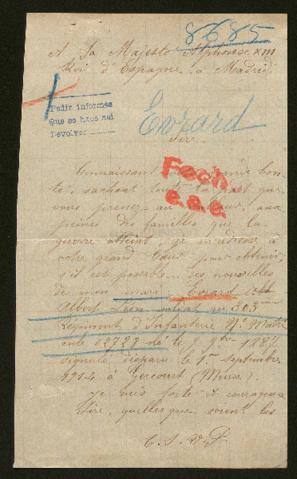 8685
A Sa Majesté Alphonse XIII
Roi d'Espagne à Madrid
Pedir informes
Que se haga aqui
Devolver
Evrard
Sire,
Connaissant grande bon-
té, sachant toute la part que
vous prenez au aux
peines des familles que la
Fech
e.a.e.
guerre atteint, je m'adresse à
votre grand cœur pour obtenir,
s'il est possible des nouvelles
de mon mari Evrard
Albert Léon soldat au 303ème
Régiment d'Infanterie N° Matri-
cule 02728 né le 1887
signalé disparu le 1er septembre
1914 à Gercourt (Meuse).
Je suis forte et courageuse
Sire, quelles que soient les
T. S. V. P.